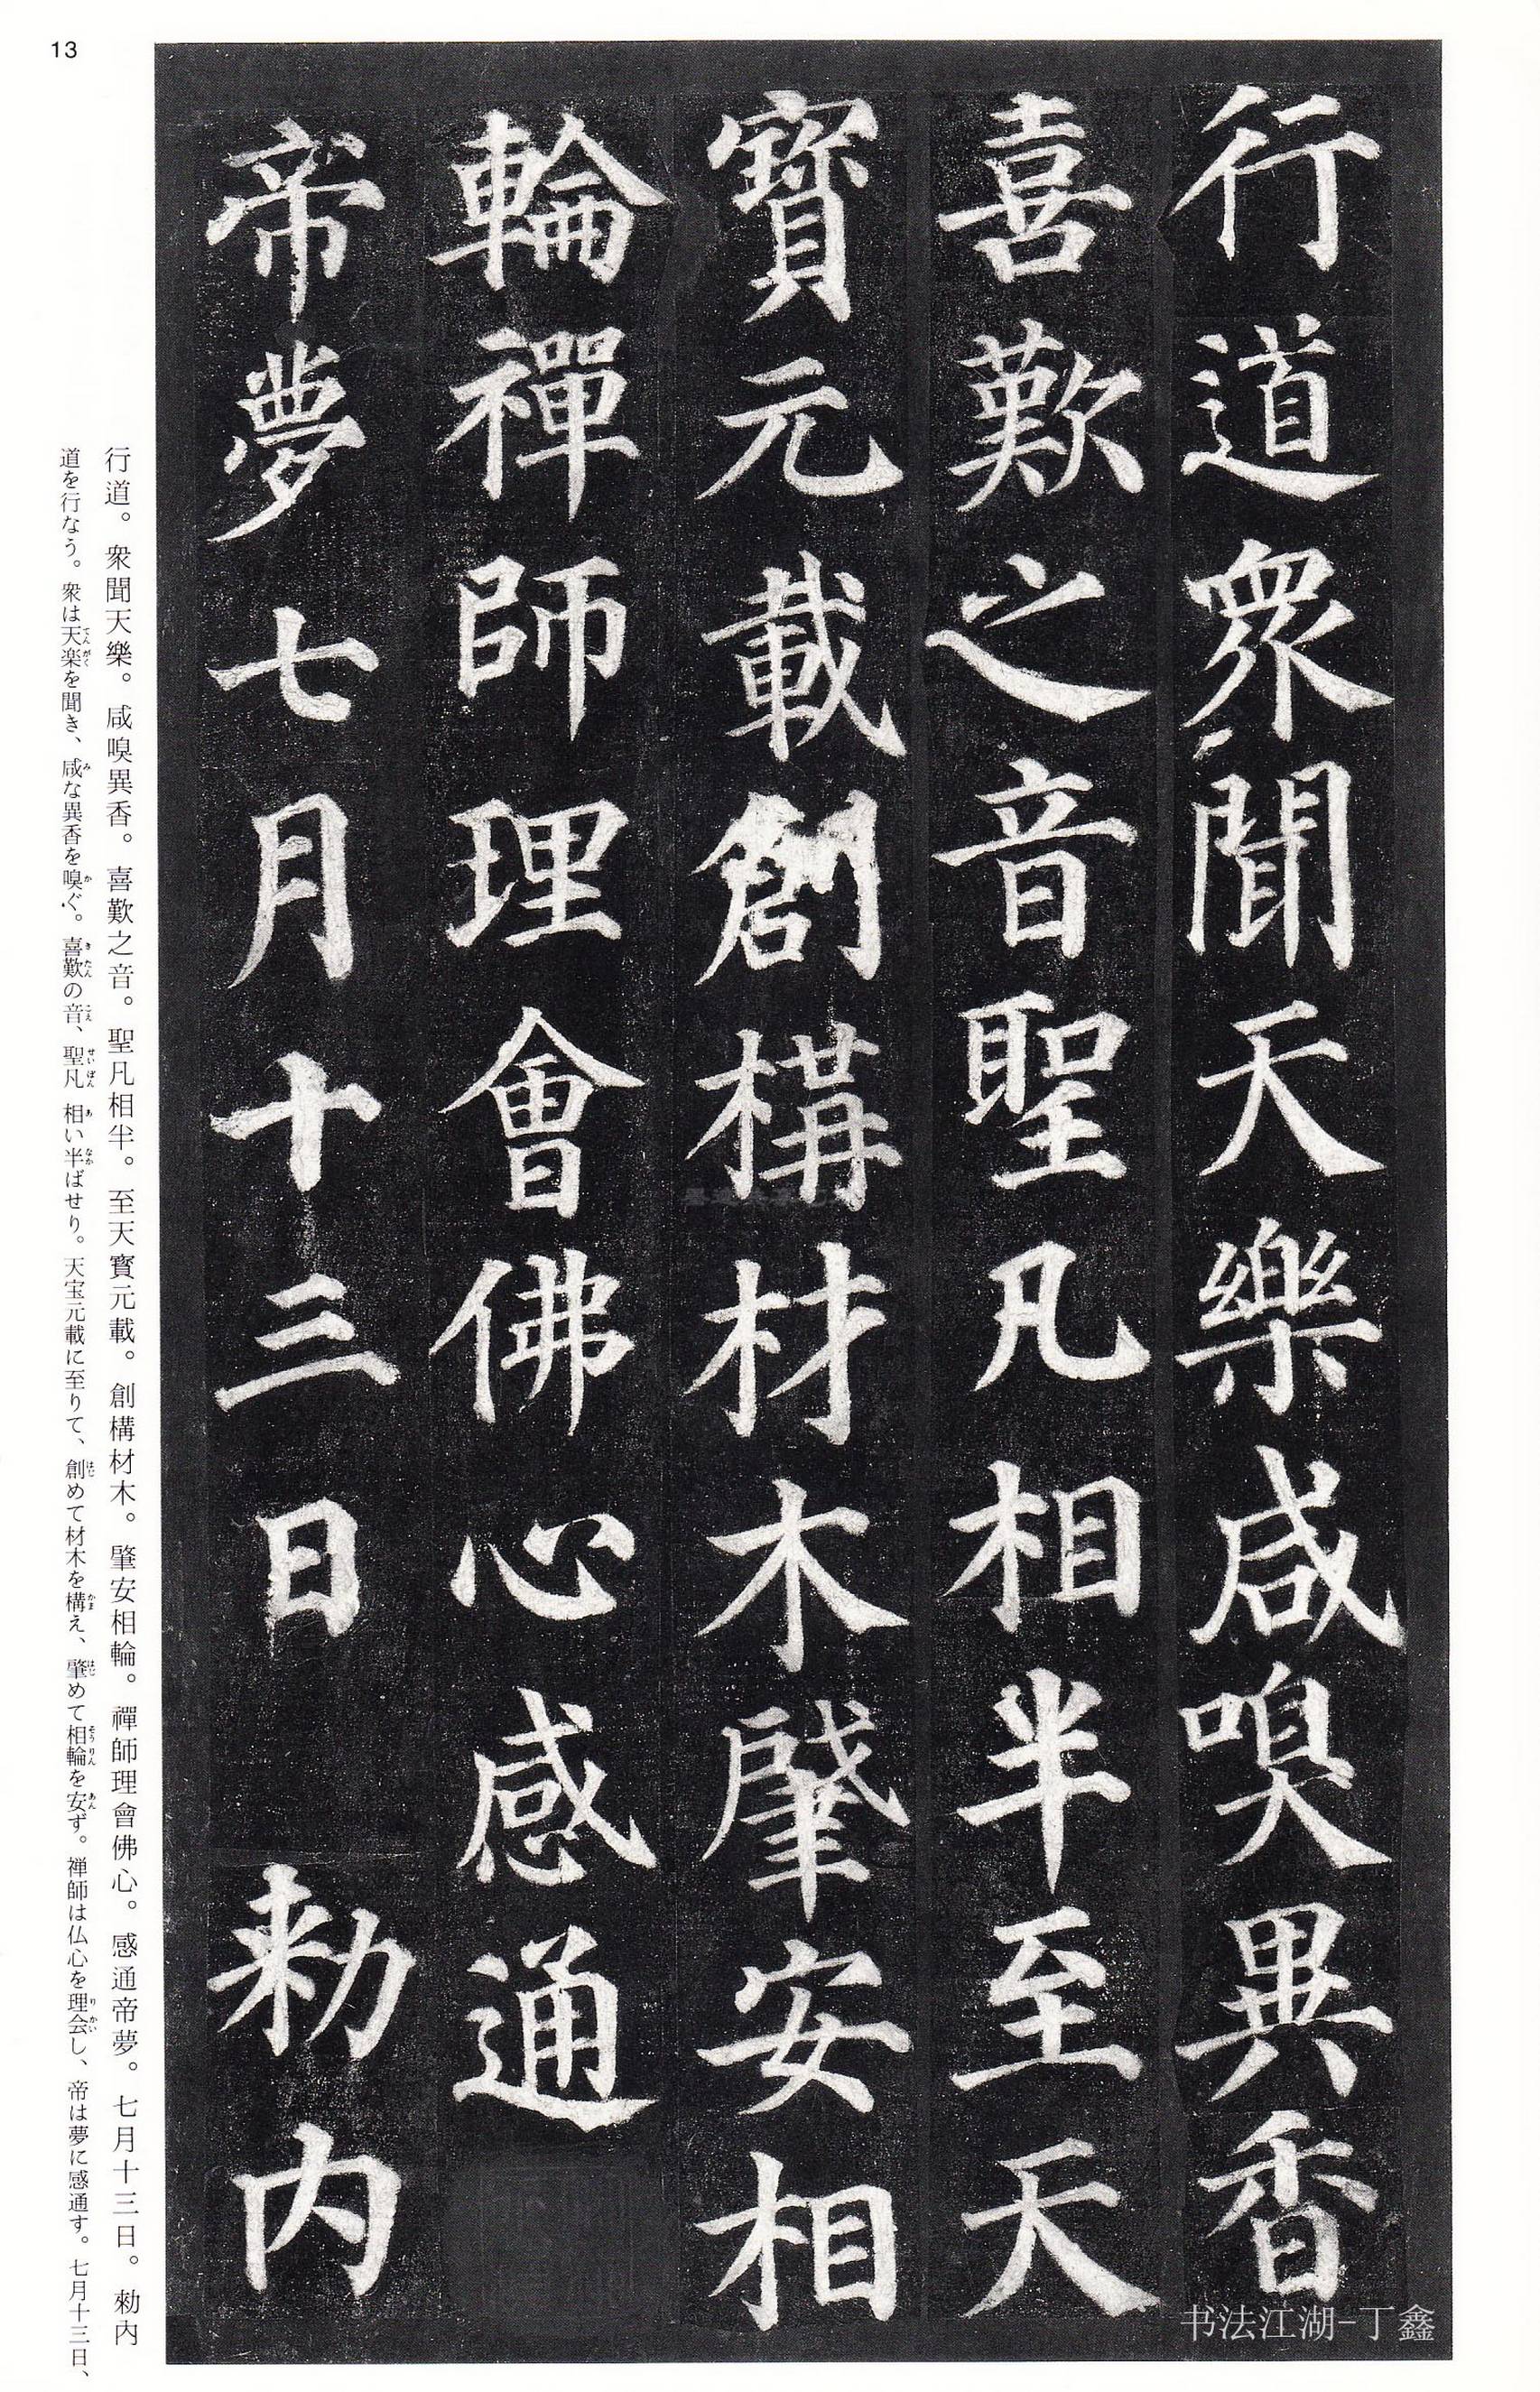 行道衆聞天樂咸嗅異香
喜歎之音聖凡相半至天
寶元載創構材木肇安相
輪禪師理會佛心感通
帝夢七月十三日 勑内
行道。衆聞天樂。咸嗅異香。喜歎之音。聖凡相半。至天寳元載。創構材木。肇安相輪。禪師理會佛心。感通帝夢。七月十三日。勑内
道を行なう。衆は天楽を聞き、咸な異香を嗅ぐ。喜歎の音、聖凡相い半ばせり。天宝元載に至りて、創めて材木を構え、肇めて相輪を安ず。禅師は仏心を理会し、帝は夢に感通す。七月十三日、
13
书法江湖-丁鑫